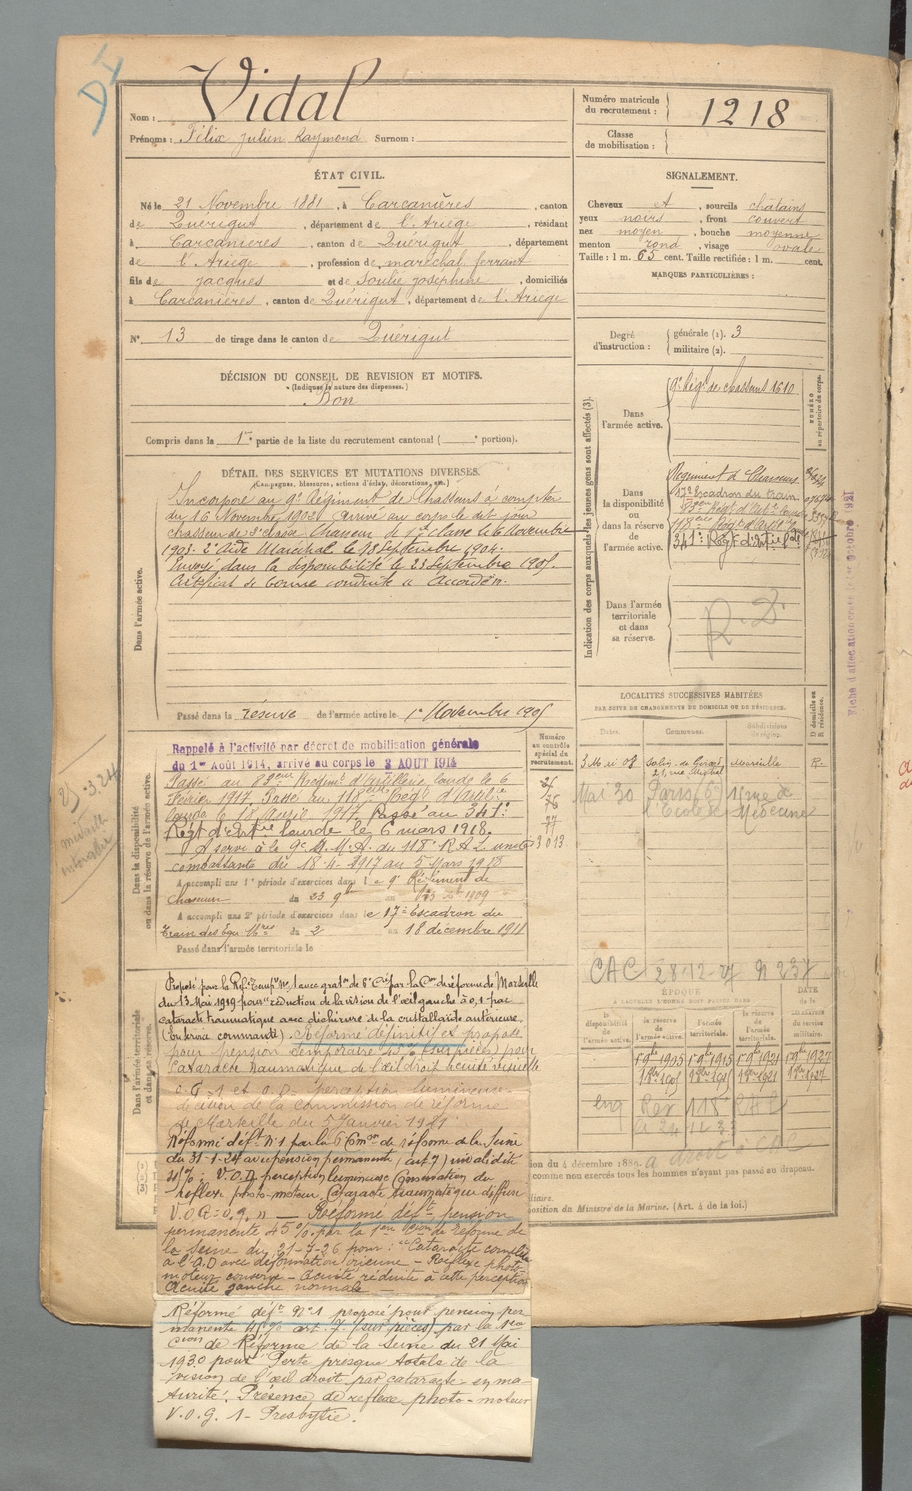 D I
Nom : Vidal
Prénoms : Félix Julien Raymond Surnom :
Numéro matricule
du recrutement : 1218
Classe
de mobilisation :
ÉTAT CIVIL.
Né le 21 Novembre 1881, à Carcanières, canton
de Quérigut, département de l'Ariège, résidant
à Carcanieres, canton de Quérigut, département
de l'Ariege, profession de maréchal ferrant
fils de Jacques et de Soulié Joséphine, domiciliés
à Carcanières, canton de Quérigut, département de l'Ariege
N° 13 de tirage dans le canton de Quérigut
SIGNALEMENT.
Cheveux et, sourcils châtains
yeux noirs, front couvert
nez moyen, bouche moyenne
menton rond, visage ovale
Taille : 1 m. 65 cent. Taille rectifiée : 1 m. cent.
MARQUES PARTICULIÈRES :
Degré
d'instruction :
générale (1). 3
militaire (2).
DÉCISION DU CONSEIL DE REVISION ET MOTIFS.
(Indiquer la nature des dispenses.)
Bon
Compris dans la 1re partie de la liste du recrutement cantonal ( portion).
DÉTAIL DES SERVICES ET MUTATIONS DIVERSES.
(Campagnes, blessures, actions d'éclat, décorations, etc.)
Dans l'armée active.
Incorporé au 9e Régiment de Chasseurs à compter
du 16 Novembre 1902. Arrivé au corps le dit jour
chasseur de 2e classe. Chasseur de 1re classe le 6 Novembre
1903. 2e Aide Maréchal le 18 Septembre 1904.
Envoyé dans la disponibilité le 23 Septembre 1905.
Certificat de bonne conduite « Accordé ».
Passé dans la réserve de l'armée active le 1er Novembre 1905
Indication des corps auxquels les jeunes gens sont affectés (3).
Dans
l'armée active.
9e Régt de Chasseurs 1610
NUMÉRO
au répertoire du corps.
Dans
la disponibilité
ou
dans la réserve
de
l'armée active.
Régiment de Chasseurs
17e Escadron du train
341e Régt d'Artie
Dans l'armée
territoriale
et dans
sa réserve.
R.D.
Fiche d'affectation
LOCALITÉS SUCCESSIVES HABITÉES
PAR SUITE DE CHANGEMENTS DE DOMICILE OU DE RÉSIDENCE.
Dates. Communes. Subdivisions de région. D domicile ou R résidence.
Marseille R
Mai 30 Paris (6) 15 rue de
l'Ecole de Médecine
Dans la disponibilité
ou dans la réserve de l'armée active.
Numéro
au contrôle
spécial du
recrutement.
Rappelé à l'activité par décret de mobilisation générale
du 1er Août 1914, arrivé au corps le 3 AOUT 1914
Passé au 83eme Régiment d'Artillerie Lourde le 6
Février 1917. Passé au 118eme Régt d'Artrie
Lourde le 18 Avril 1917. Passé au 341e
Régt d'Artrie lourde le 6 mars 1918.
A servi à le 9e S.M.A. du 118e R.A.L. unité
combattante du 18-4-1917 au 5 Mars 1918
3013
A accompli une 1re période d'exercices dans le 9e Régiment de
Chasseurs du 23 9bre au 1909
A accompli une 2e période d'exercices dans le 17e Escadron du
Train des Eq. Mres du 2 au 18 décembre 1911
Passé dans l'armée territoriale le
25.3.24
médaille
CAC 28-12-27 N 237
ÉPOQUE
À LAQUELLE L'HOMME DOIT PASSER DANS
la disponibilité de l'armée active.
la réserve de l'armée active.
l'armée territoriale.
la réserve de l'armée territoriale.
DATE
de la
LIBÉRATION
du service
militaire.
1905 1915 1921 1927
Dans l'armée territoriale
et dans sa réserve.
Proposé pour la Réf. Temp. N°1 avec gratn de 8e Cie par la Con de réforme de Marseille
du 13 Mai 1919 pour réduction de la vision de l'œil gauche à 0,1 par
cataracte traumatique avec déchirure de la cristalloïde antérieure.
(En service commandé). Réformé définitif et proposé
pour pension temporaire 45% (sur pièces) pour
Cataracte traumatique de l'œil droit. Acuité visuelle
O.G. 1 et O.D. perception lumineuse
décision de la commission de réforme
de Marseille du 5 Janvier 1921.
Réformé déft N°1 par la 6 Comon de réforme de la Seine
du 31-1-24 avec pension permanente (art 7) invalidité
V.O.D. perception lumineuse. Conservation du
réflexe photo-moteur. Cataracte traumatique diffuse
Réformé déft pension
permanente 45% par la 1ere Cion de Réforme de
la Seine du 21-7-26 pour : "Cataracte complète
à l'O.D avec déformation irienne - Réflexe photo-
moteur conservé - Acuité réduite à cette perception
Acuité gauche normale -
Réformé déft N°1 proposé pour pension per
manente 45% art. 7 (sur pièces) par la 1re
Cion de Réforme de la Seine du 21 Mai
1930 pour "Perte presque totale de la
vision de l'œil droit par cataracte en ma-
turité. Présence de réflexe photo-moteur
V.O.G. 1 - Presbytie.
ion du 4 décembre 1889.
comme non exercés tous les hommes n'ayant pas passé au drapeau.
position du Ministre de la Marine. (Art. 4 de la loi.)